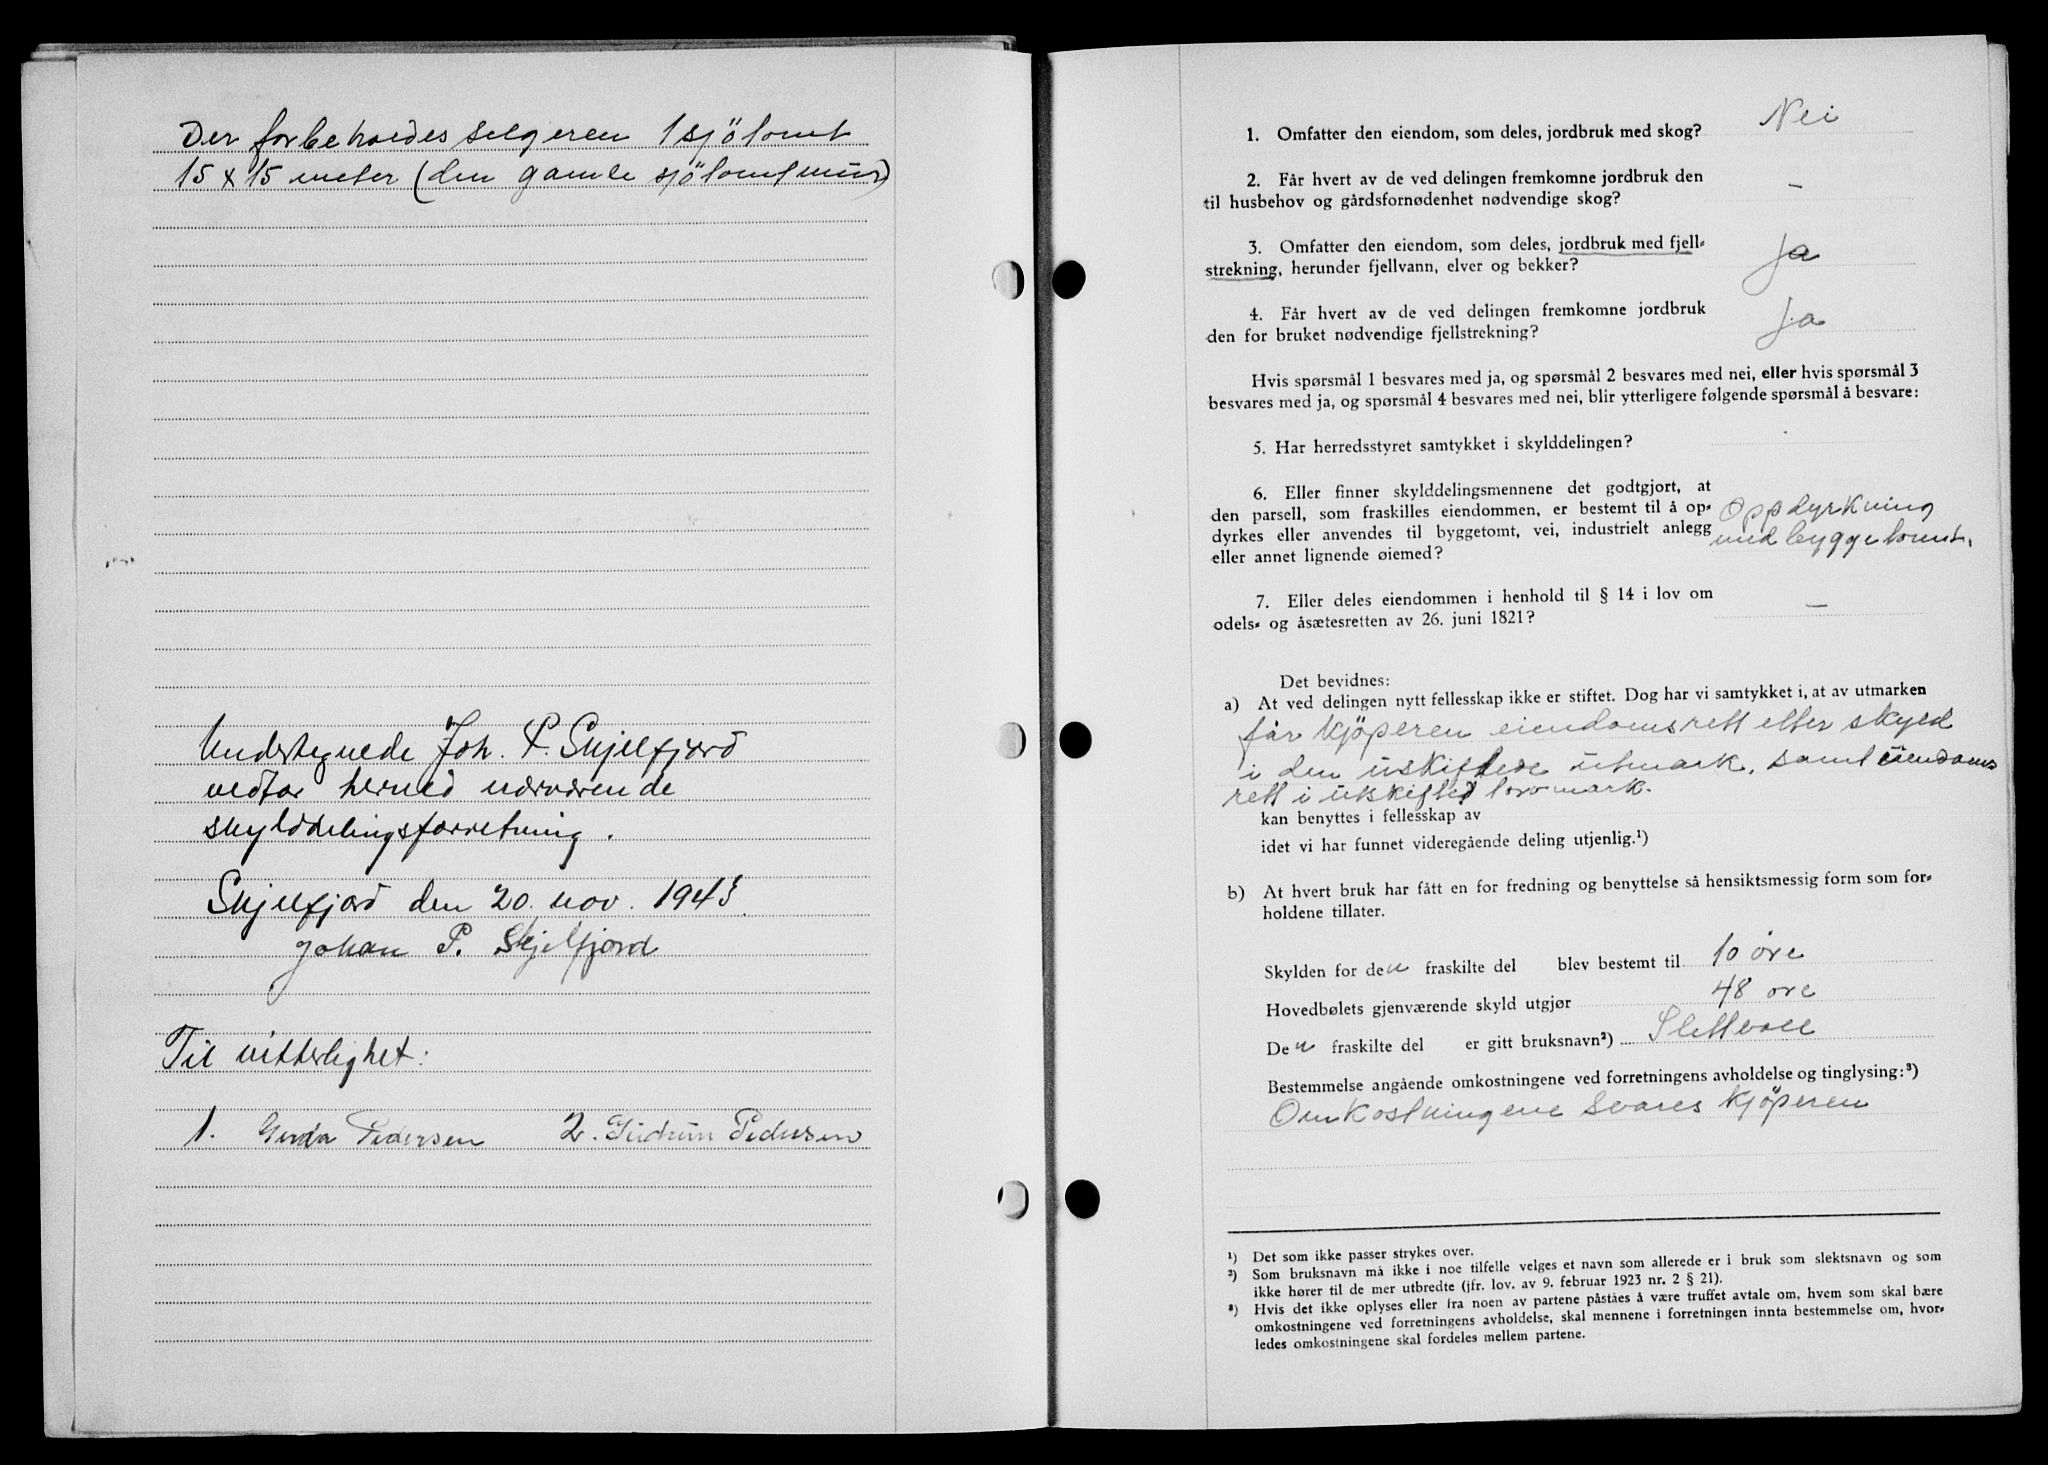 Der forbeholdes selgeren 1 sjötomt
15 x 15 meter (den gamle sjötomtmur)
Undertegnede Joh. P. Skjelfjord
vedtar herved nærværende
skylddelingsforretning.
Skjelfjord den 20. nov. 1943.
Johan P. Skjelfjord
Til vitterlighet:
1. Gerda Pedersen 2. Gudrun Pedersen
1. Omfatter den eiendom, som deles, jordbruk med skog? Nei
2. Får hvert av de ved delingen fremkomne jordbruk den
til husbehov og gårdsfornødenhet nødvendige skog? –
3. Omfatter den eiendom, som deles, jordbruk med fjell-
strekning, herunder fjellvann, elver og bekker? Ja
4. Får hvert av de ved delingen fremkomne jordbruk
den for bruket nødvendige fjellstrekning? Ja
Hvis spørsmål 1 besvares med ja, og spørsmål 2 besvares med nei, eller hvis spørsmål 3
besvares med ja, og spørsmål 4 besvares med nei, blir ytterligere følgende spørsmål å besvare:
5. Har herredsstyret samtykket i skylddelingen?
6. Eller finner skylddelingsmennene det godtgjort, at
den parsell, som fraskilles eiendommen, er bestemt til å op- Oppdyrkning
dyrkes eller anvendes til byggetomt, vei, industrielt anlegg med byggetomt.
eller annet lignende øiemed?
7. Eller deles eiendommen i henhold til § 14 i lov om
odels- og åsætesretten av 26. juni 1821? –
Det bevidnes:
a) At ved delingen nytt fellesskap ikke er stiftet. Dog har vi samtykket i, at av utmarken
får kjöperen eiendomsrett etter skyld
i den uskiftede utmark, samt eiendoms
rett i uskiftet torvmark.
kan benyttes i fellesskap av
idet vi har funnet videregående deling utjenlig.¹)
b) At hvert bruk har fått en for fredning og benyttelse så hensiktsmessig form som for-
holdene tillater.
Skylden for den fraskilte del blev bestemt til 10 øre
Hovedbølets gjenværende skyld utgjør 48 øre
Den fraskilte del er gitt bruksnavn²) Slettvoll
Bestemmelse angående omkostningene ved forretningens avholdelse og tinglysing:³)
Omkostningene svares kjöperen
¹) Det som ikke passer strykes over.
²) Som bruksnavn må ikke i noe tilfelle velges et navn som allerede er i bruk som slektsnavn og som
ikke hører til de mer utbredte (jfr. lov. av 9. februar 1923 nr. 2 § 21).
³) Hvis det ikke oplyses eller fra noen av partene påståes å være truffet avtale om, hvem som skal bære
omkostningene ved forretningens avholdelse, skal mennene i forretningen innta bestemmelse om, hvor-
ledes omkostningene skal fordeles mellem partene.